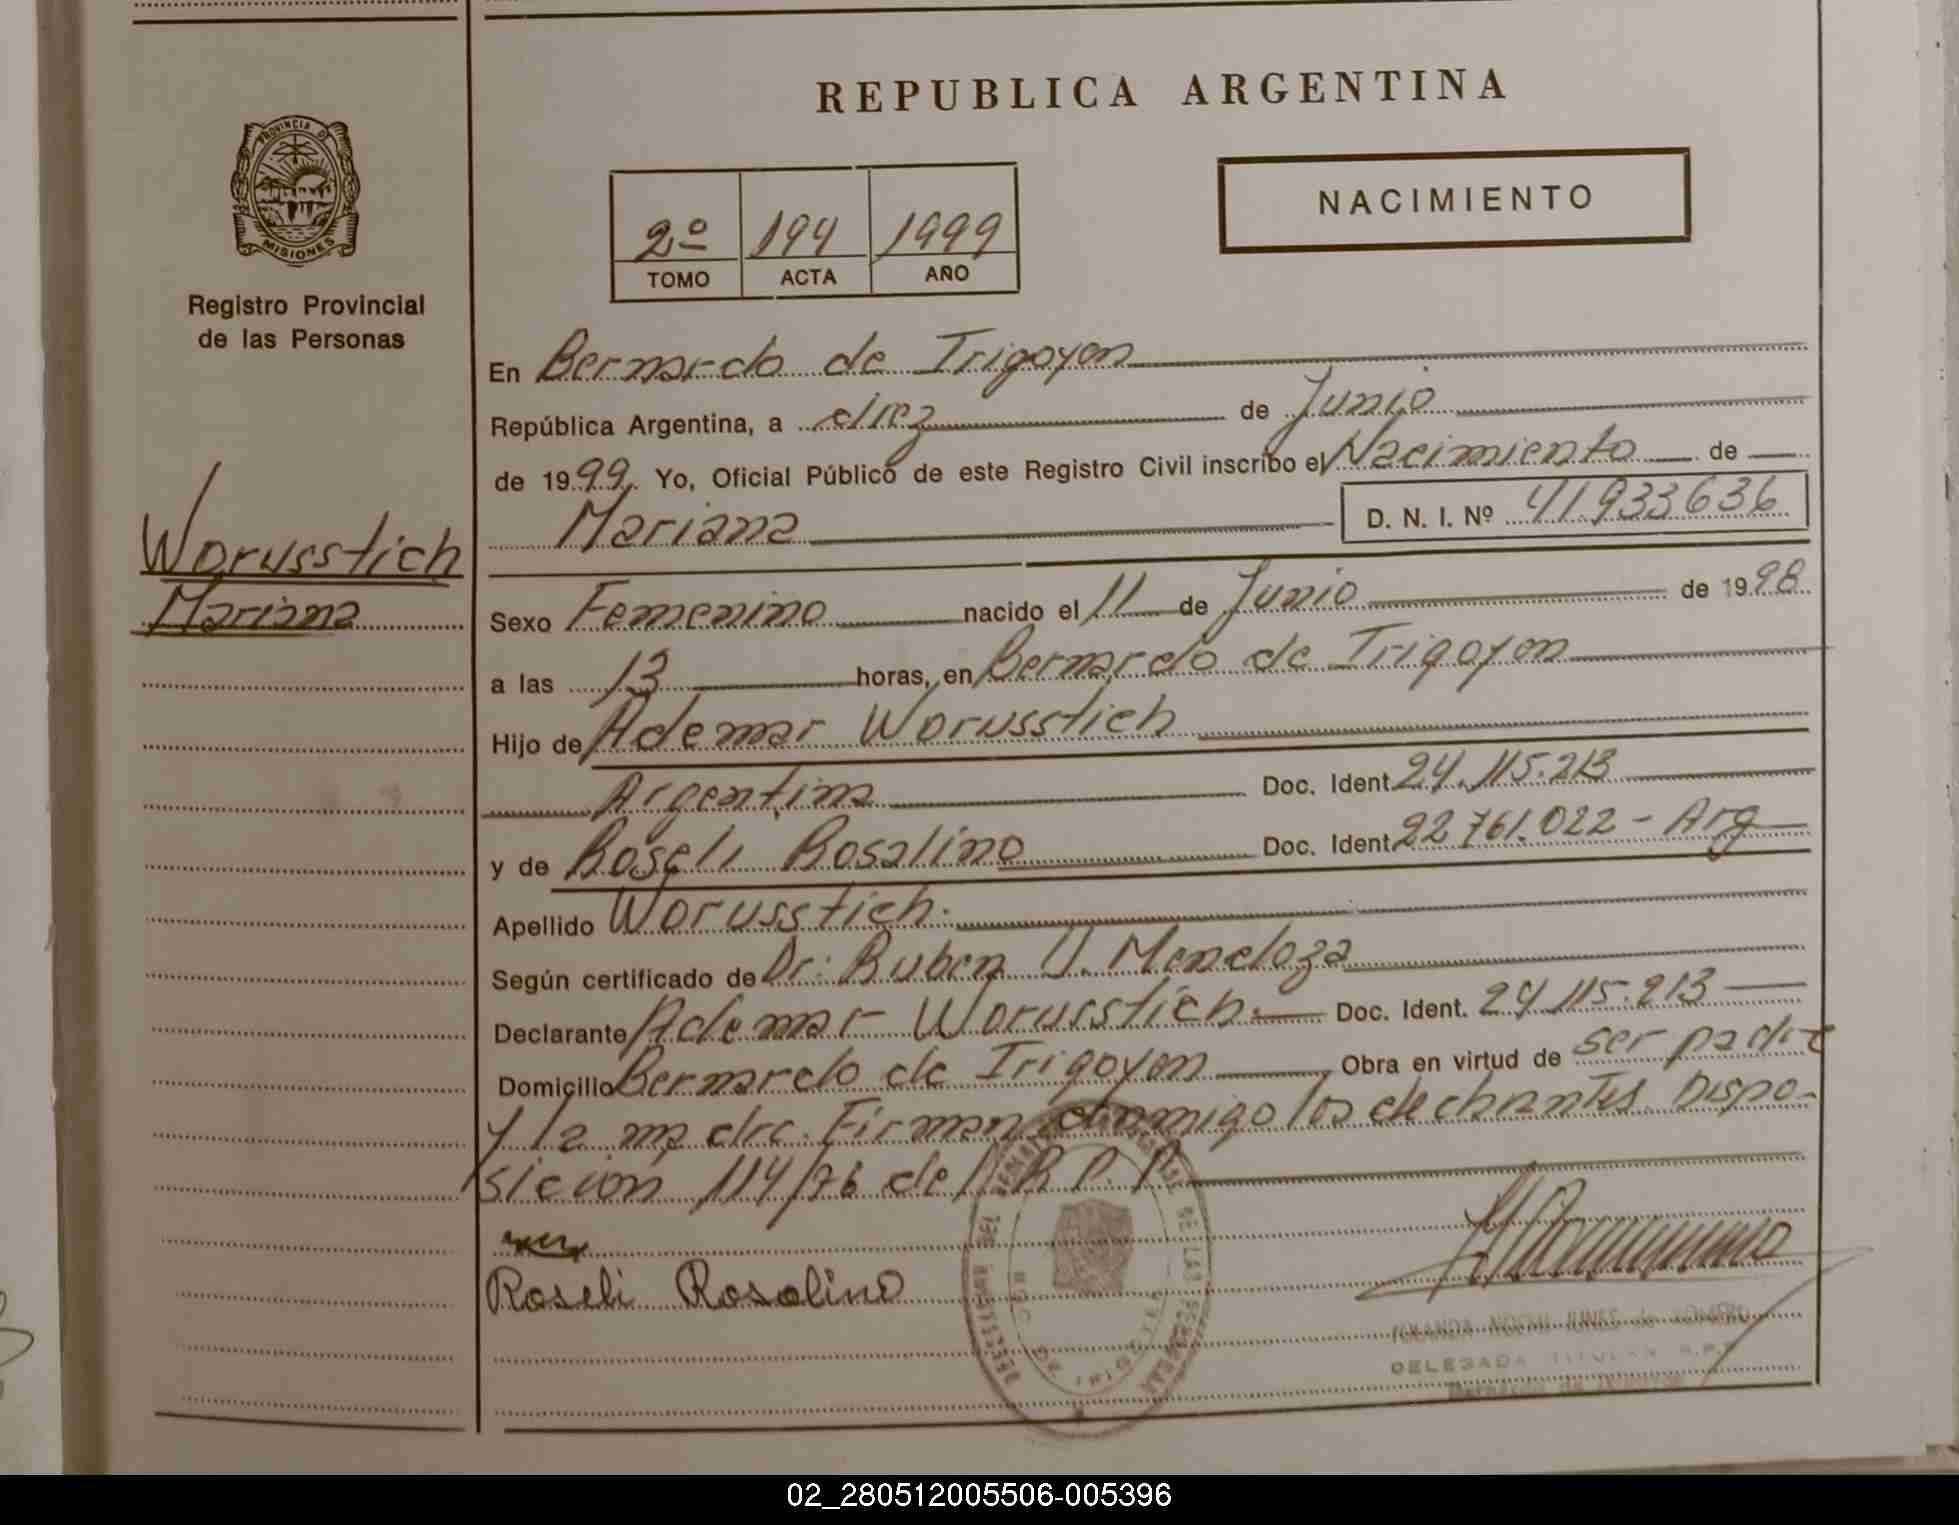 REPUBLICA ARGENTINA
PROVINCIA DE
MISIONES
Registro Provincial
de las Personas
2º 194 1999
TOMO ACTA AÑO
NACIMIENTO
Worusstich
Mariana
En Bernardo de Irigoyen
República Argentina, a diez de Junio
de 1999. Yo, Oficial Público de este Registro Civil inscribo el Nacimiento de
Mariana D. N. I. Nº 41.933636
Sexo Femenino nacido el 11 de Junio de 1998
a las 13 horas, en Bernardo de Irigoyen
Hijo de Ademar Worusstich
Argentina Doc. Ident. 24.115.213
y de Roseli Rosalino Doc. Ident. 22761.022 - Arg
Apellido Worusstich.
Según certificado de Dr: Ruben U. Mendoza
Declarante Ademar Worusstich. Doc. Ident. 24 115.213
Domicilio Bernardo de Irigoyen Obra en virtud de ser padre
y la madre. Firman conmigo los declarantes. Dispo-
sición 114/76 del R. P. P.
Roseli Rosalino
DE LAS PERSONAS
BDO. DE IRIGOYEN
YOLANDA NOEMI JUNES de ROMERO
DELEGADA TITULAR R.P.P.
Bernardo de Irigoyen
02_280512005506-005396